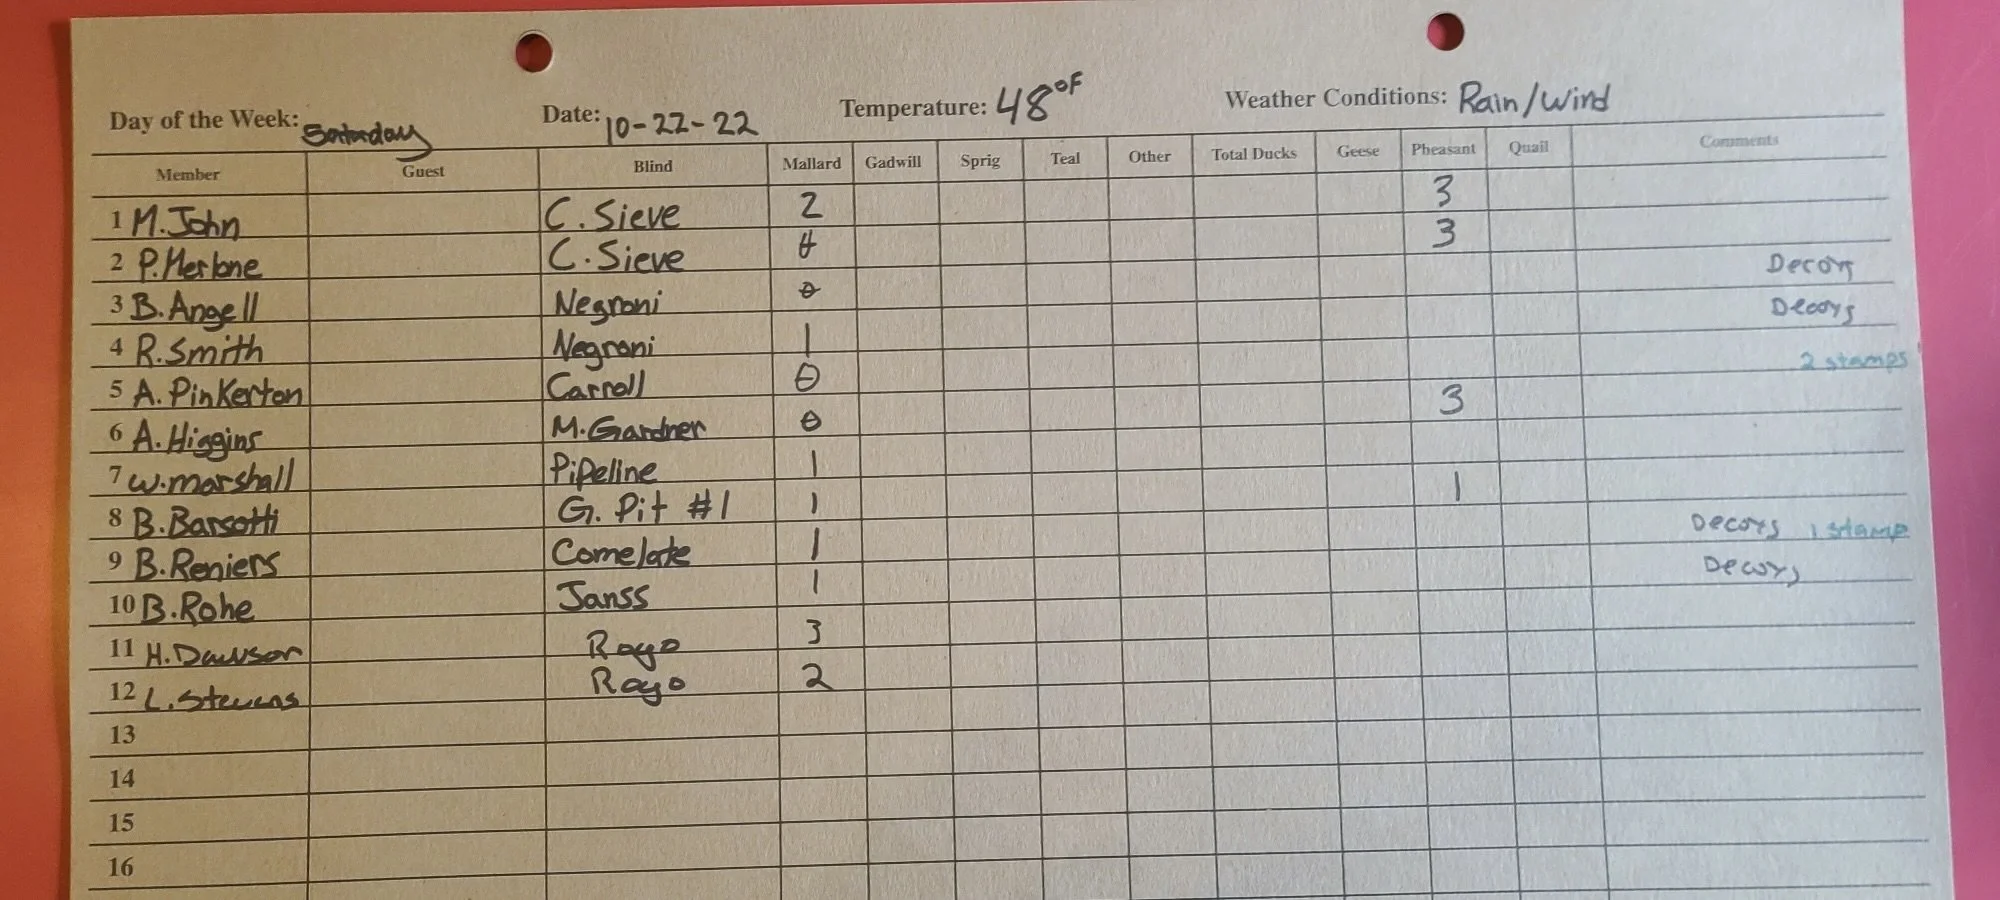 Day of the Week: Saturday Date: 10-22-22 Temperature: 48°F Weather Conditions: Rain/Wind
Member Guest Blind Mallard Gadwill Sprig Teal Other Total Ducks Geese Pheasant Quail Comments
1 M. John C. Sieve 2 3
2 P. Merlone C. Sieve 3
3 B. Angell Negroni 0 Decoys
4 R. Smith Negroni 1 Decoys
5 A. Pinkerton Carroll 0 2 stamps
6 A. Higgins M. Gardner 0 3
7 W. Marshall Pipeline 1
8 B. Barsotti G. Pit #1 1 1
9 B. Reniers Comelate 1 Decoys 1 stamp
10 B. Rohe Janss 1 Decoys
11 H. Dawson Rayo 3
12 L. Stevens Rayo 2
13
14
15
16